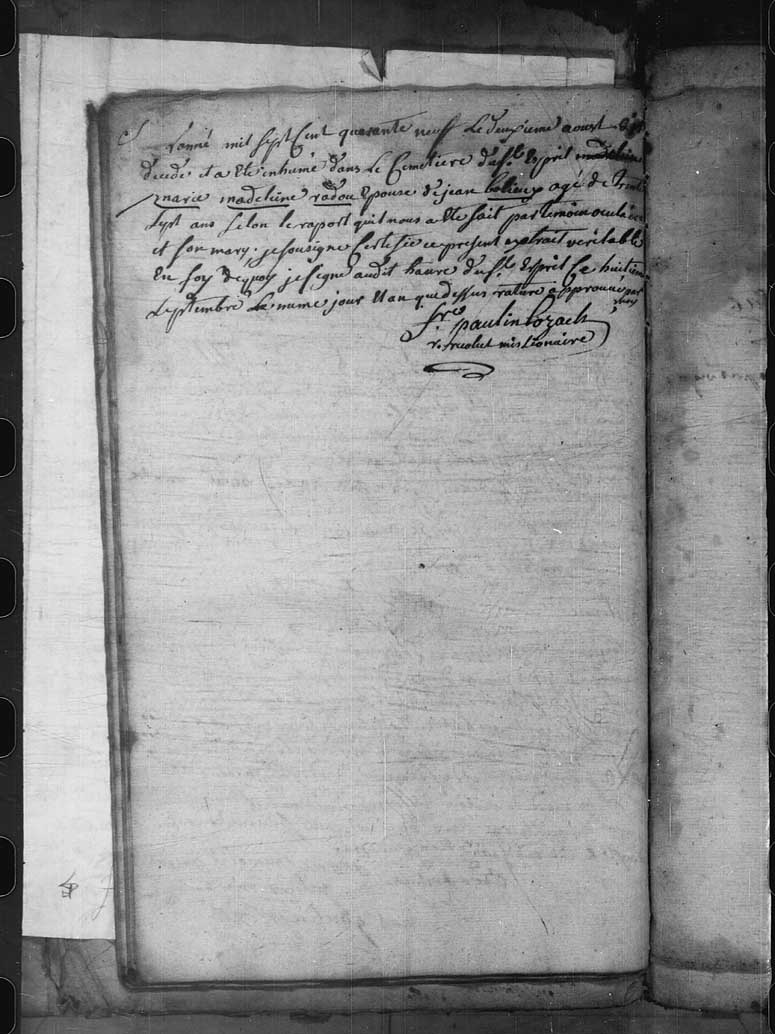 Lanné mil sept Cent quarante neuf Le deuxieme aoust Est
decedé et a Ete inhumé dans Le Cemetiere du St Esprit madelein
marie madeleine radou Epouse de jean bolieux agé de trente
sept ans selon le raport quil nous a Ete fait par temoin oculaire
et son mary. je sousigne Certifie ce present extrait veritable
En foy dequoy je signe audit havre du St Esprit Ce huitiem
septembre Le meme jour Et an que dessus rature approuvé par
moy
fre paulin Lozach
r. recolet missionaire